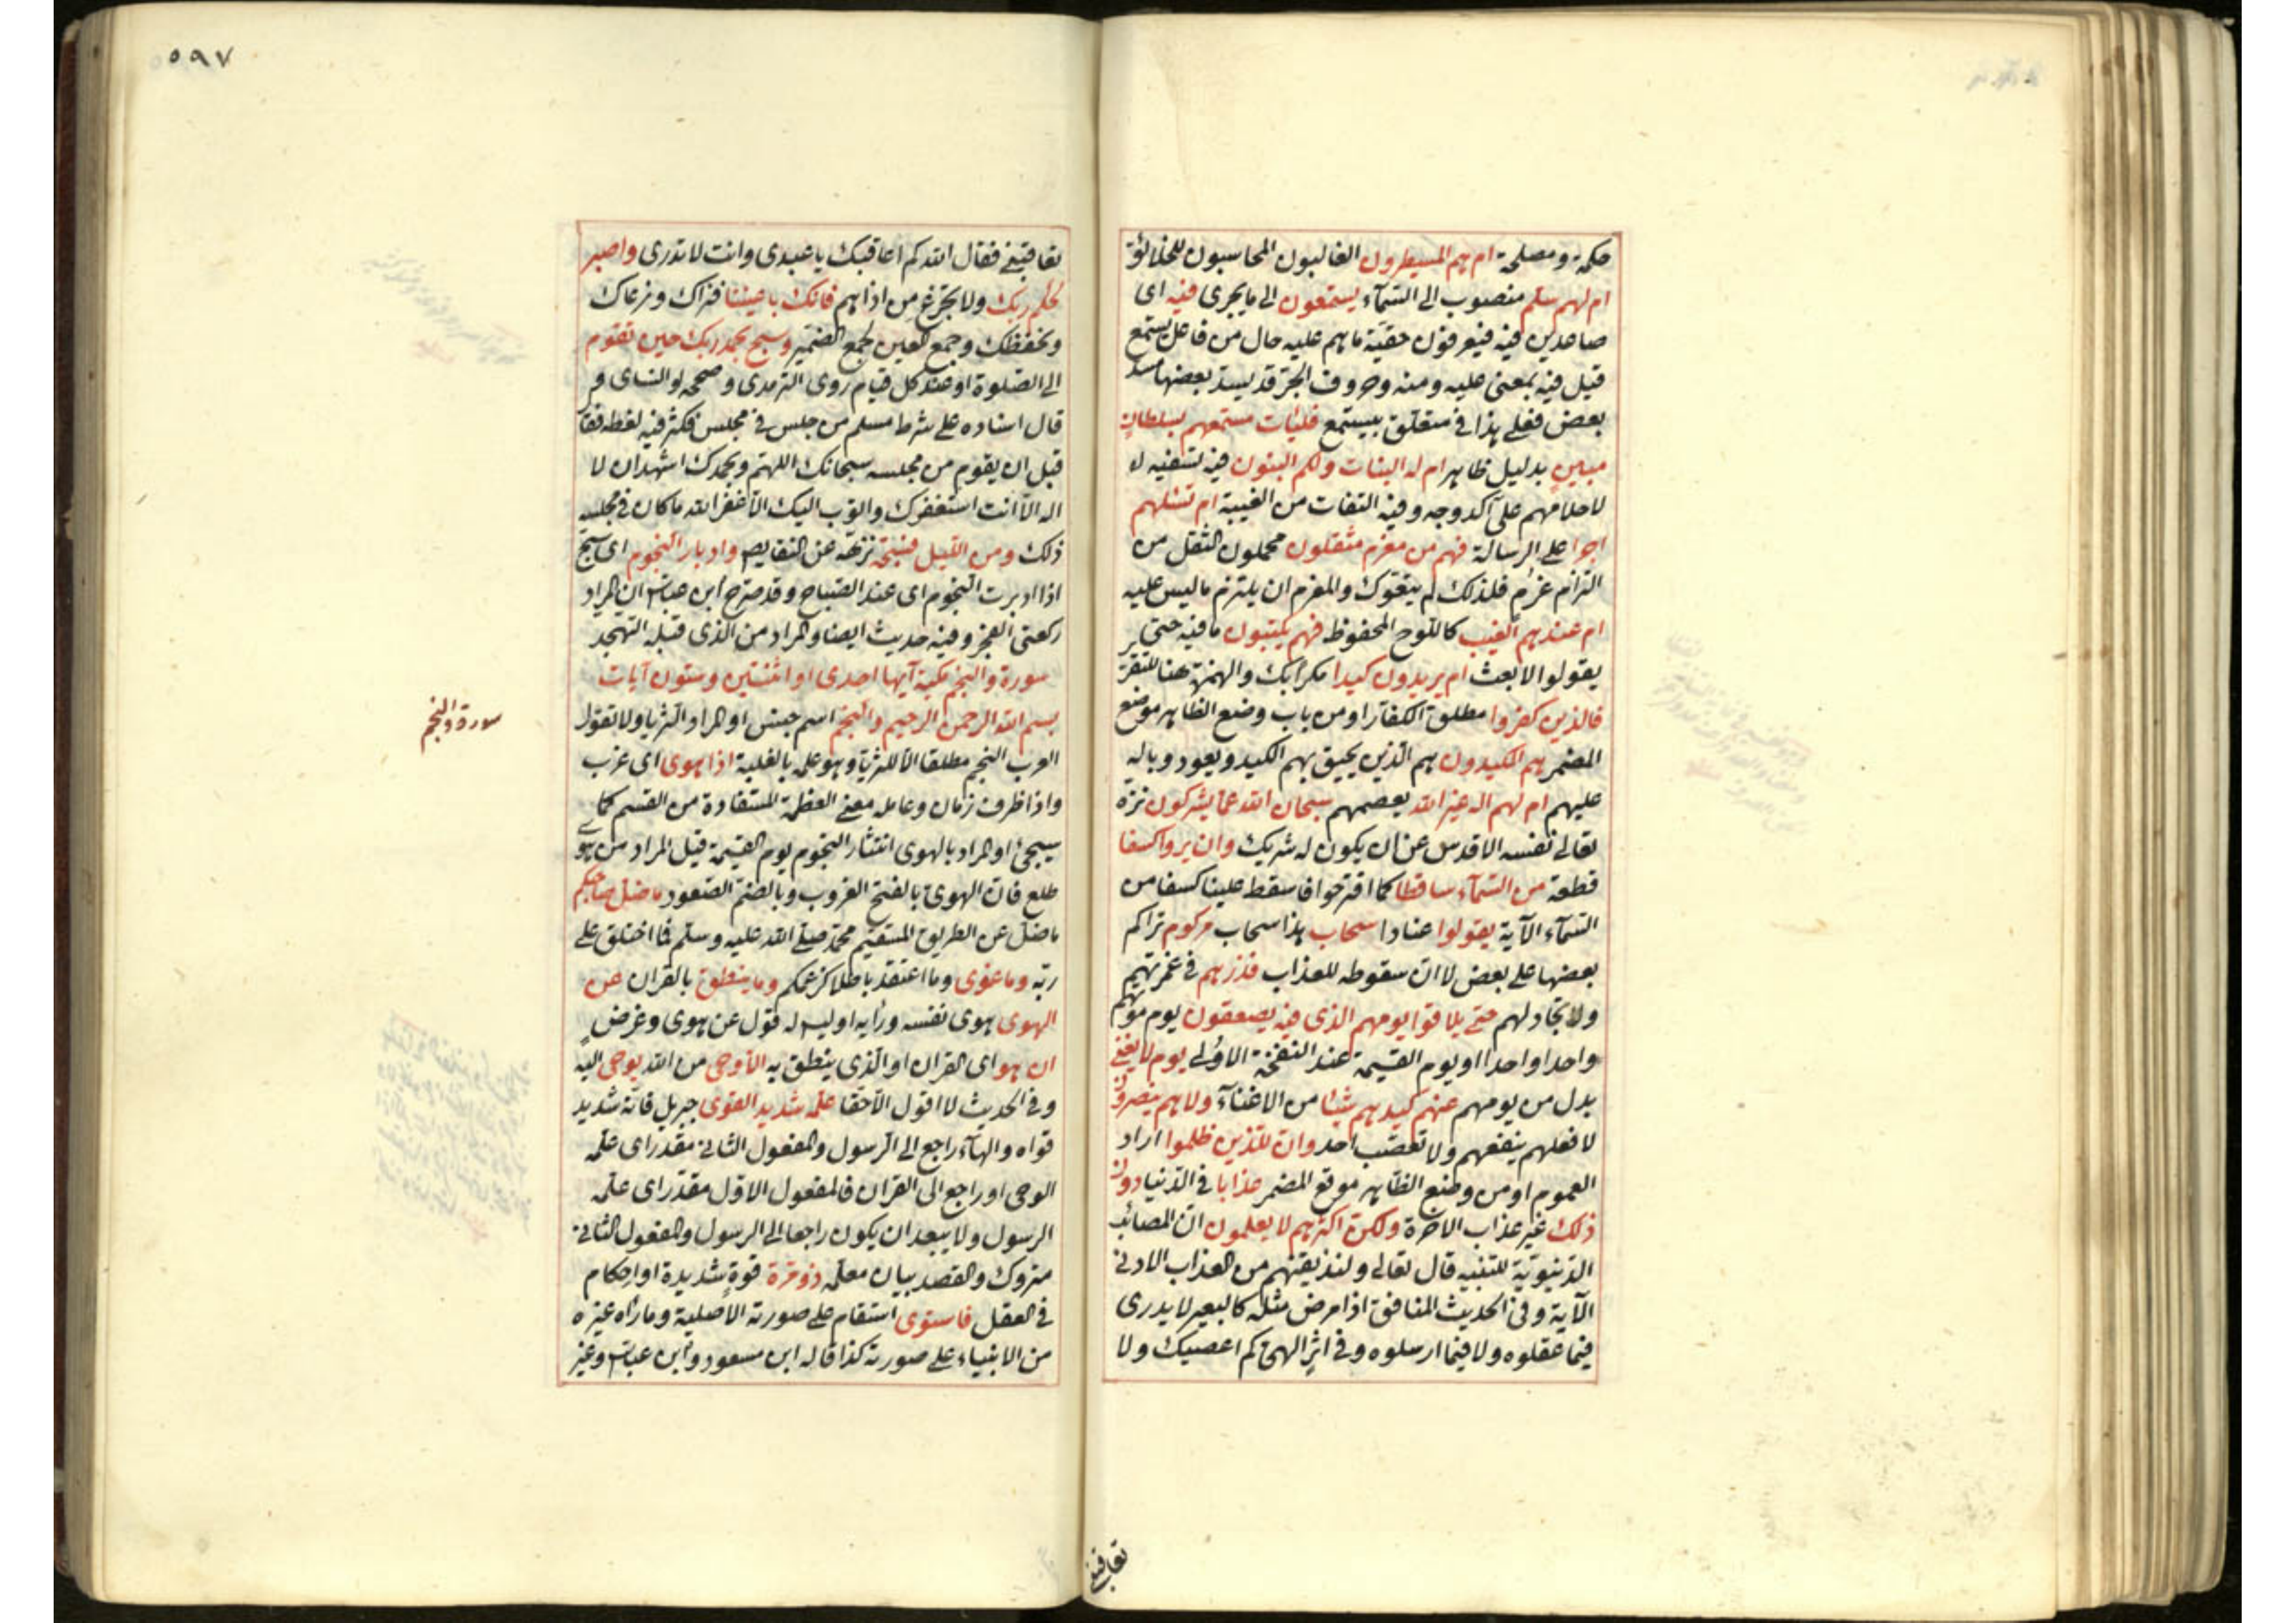 حكمة ومصلحة ام هم المسيطرون الغالبون المحاسبون للخلائق
ام لهم سلم منصوب الى السّمآء يستمعون الى ما يجرى فيه اى
صاعدين فيه فيعرفون حقيّة ما هم عليه حال من فاعل يستمع
قيل فيه بمعنى عليه ومنه وحروف الجرّ قد يسدّ بعضها مسدّ
بعض فعلى هذا فى متعلّق بيستمع فليأت مستمعهم بسلطانٍ
مبينٍ بدليل ظاهر ام له البنات ولكم البنون فيه تسفيه له
لاحلامهم على آكد وجه وفيه التفات من الغيبة ام تسئلهم
اجرا على الرسالة فهم من مغرم مثقلون محملون الثقل من
التزام غرم فلذلك لم يتبعوك والمغرم ان يلتزم ما ليس عليه
ام عندهم الغيب كاللّوح المحفوظ فهم يكتبون ما فيه حتى
يقولوا لا بعث ام يريدون كيدا مكرا بك والهمزة هنا للتقرير
فالذين كفروا مطلق الكفّار او من باب وضع الظاهر موضع
المضمر هم المكيدون هم الّذين يحيق بهم الكيد ويعود وباله
عليهم ام لهم اله غير الله يعصمهم سبحان الله عمّا يشركون نزه
تعالى نفسه الاقدس عن ان يكون له شريك وان يروا كسفا
قطعة من السّمآء ساقطا كما اقترحوا فاسقط علينا كسفا من
السّمآء الآية يقولوا عنادا سحاب هذا سحاب مركوم تراكم
بعضها على بعض لا انّ سقوطه للعذاب فذرهم فى غمرتهم
ولا تجادلهم حتى يلاقوا يومهم الذى فيه يصعقون يوم موتهم
واحدا واحدا او يوم القيمة عند النفخة الاولى يوم لا يغنى
بدل من يومهم عنهم كيدهم شيئا من الاغنآء ولا هم ينصرون
لا فعلهم ينفعهم ولا تعصّب احد وانّ للّذين ظلموا اراد
العموم او من وضع الظاهر موقع المضمر عذابا فى الدّنيا دون
ذلك غير عذاب الاخرة ولكنّ اكثرهم لا يعلمون انّ المصائب
الدّنيويّة للتنبيه قال تعالى ولنذيقنهم من العذاب الادنى
الآية وفى الحديث المنافق اذا مرض مثله كالبعير لا يدرى
فيما عقلوه ولا فيما ارسلوه وفى اثر الهى كم اعصيك ولا
تعاقبنى
٥٩٧
تعاقبنى فقال الله كم اعاقبك يا عبدى وانت لا تدرى واصبر
لحكم ربّك ولا تجزع من اذاهم فانّك باعيننا فنراك ونرعاك
ونحفظك وجمع العين لجمع الضّمير وسبّح بحمد ربّك حين تقوم
الى الصّلوة او عند كل قيام روى الترمذى وصححه والنسائى و
قال اسناده على شرط مسلم من جلس فى مجلس فكثر فيه لغطه فقال
قبل ان يقوم من مجلسه سبحانك اللهمّ وبحمدك اشهد ان لا
اله الّا انت استغفرك واتوب اليك الّا غفر الله ما كان فى مجلسه
ذلك ومن اللّيل فسبّحه نزّهه عن النقايص وادبار النّجوم اى سبّح
اذا ادبرت النّجوم اى عند الصّباح وقد صرّح ابن عباس ان المراد
ركعتى الفجر وفيه حديث ايضا والمراد من الذى قبله التهجد
سورة والنجم مكية آيها احدى او اثنتين وستون آيات
بسم الله الرحمن الرحيم والنّجم اسم جنس او المراد الثريا ولا تقول
سورة والنجم
العرب النجم مطلقا الّا للثريّا وهو علم بالغلبة اذا هوى اى غرب
واذا ظرف زمان وعامله معنى العظمة المستفادة من القسم كما
سيجئ او المراد بالهوى انتثار النجوم يوم القيمة قيل المراد من هوى
طلع فانّ الهوىّ بالفتح الغروب وبالضّم الصّعود ما ضلّ صاحبكم
ما ضلّ عن الطريق المستقيم محمّد صلى الله عليه وسلّم فما اختلق على
ربّه وما غوى وما اعتقد باطلا كزعمكم وما ينطق بالقران عن
الهوى هوى نفسه ورأيه او ليس له قول عن هوى وغرضٍ
ان هو اى القران او الّذى ينطق به الّا وحى من الله يوحى اليه
وفى الحديث لا اقول الّا حقا علّمه شديد القوى جبريل فانّه شديد
قواه والهآء راجع الى الرسول والمفعول الثانى مقدر اى علّمه
الوحى او راجع الى القران فالمفعول الاوّل مقدّر اى علّمه
الرسول ولا يبعد ان يكون راجعا الى الرسول والمفعول الثانى
متروك والقصد بيان معلّمه ذو مرّة قوةٍ شديدة او احكام
فى العقل فاستوى استقام على صورته الاصلية وما راه غيره
من الانبياء على صورته كذا قاله ابن مسعود وابن عباس وغير